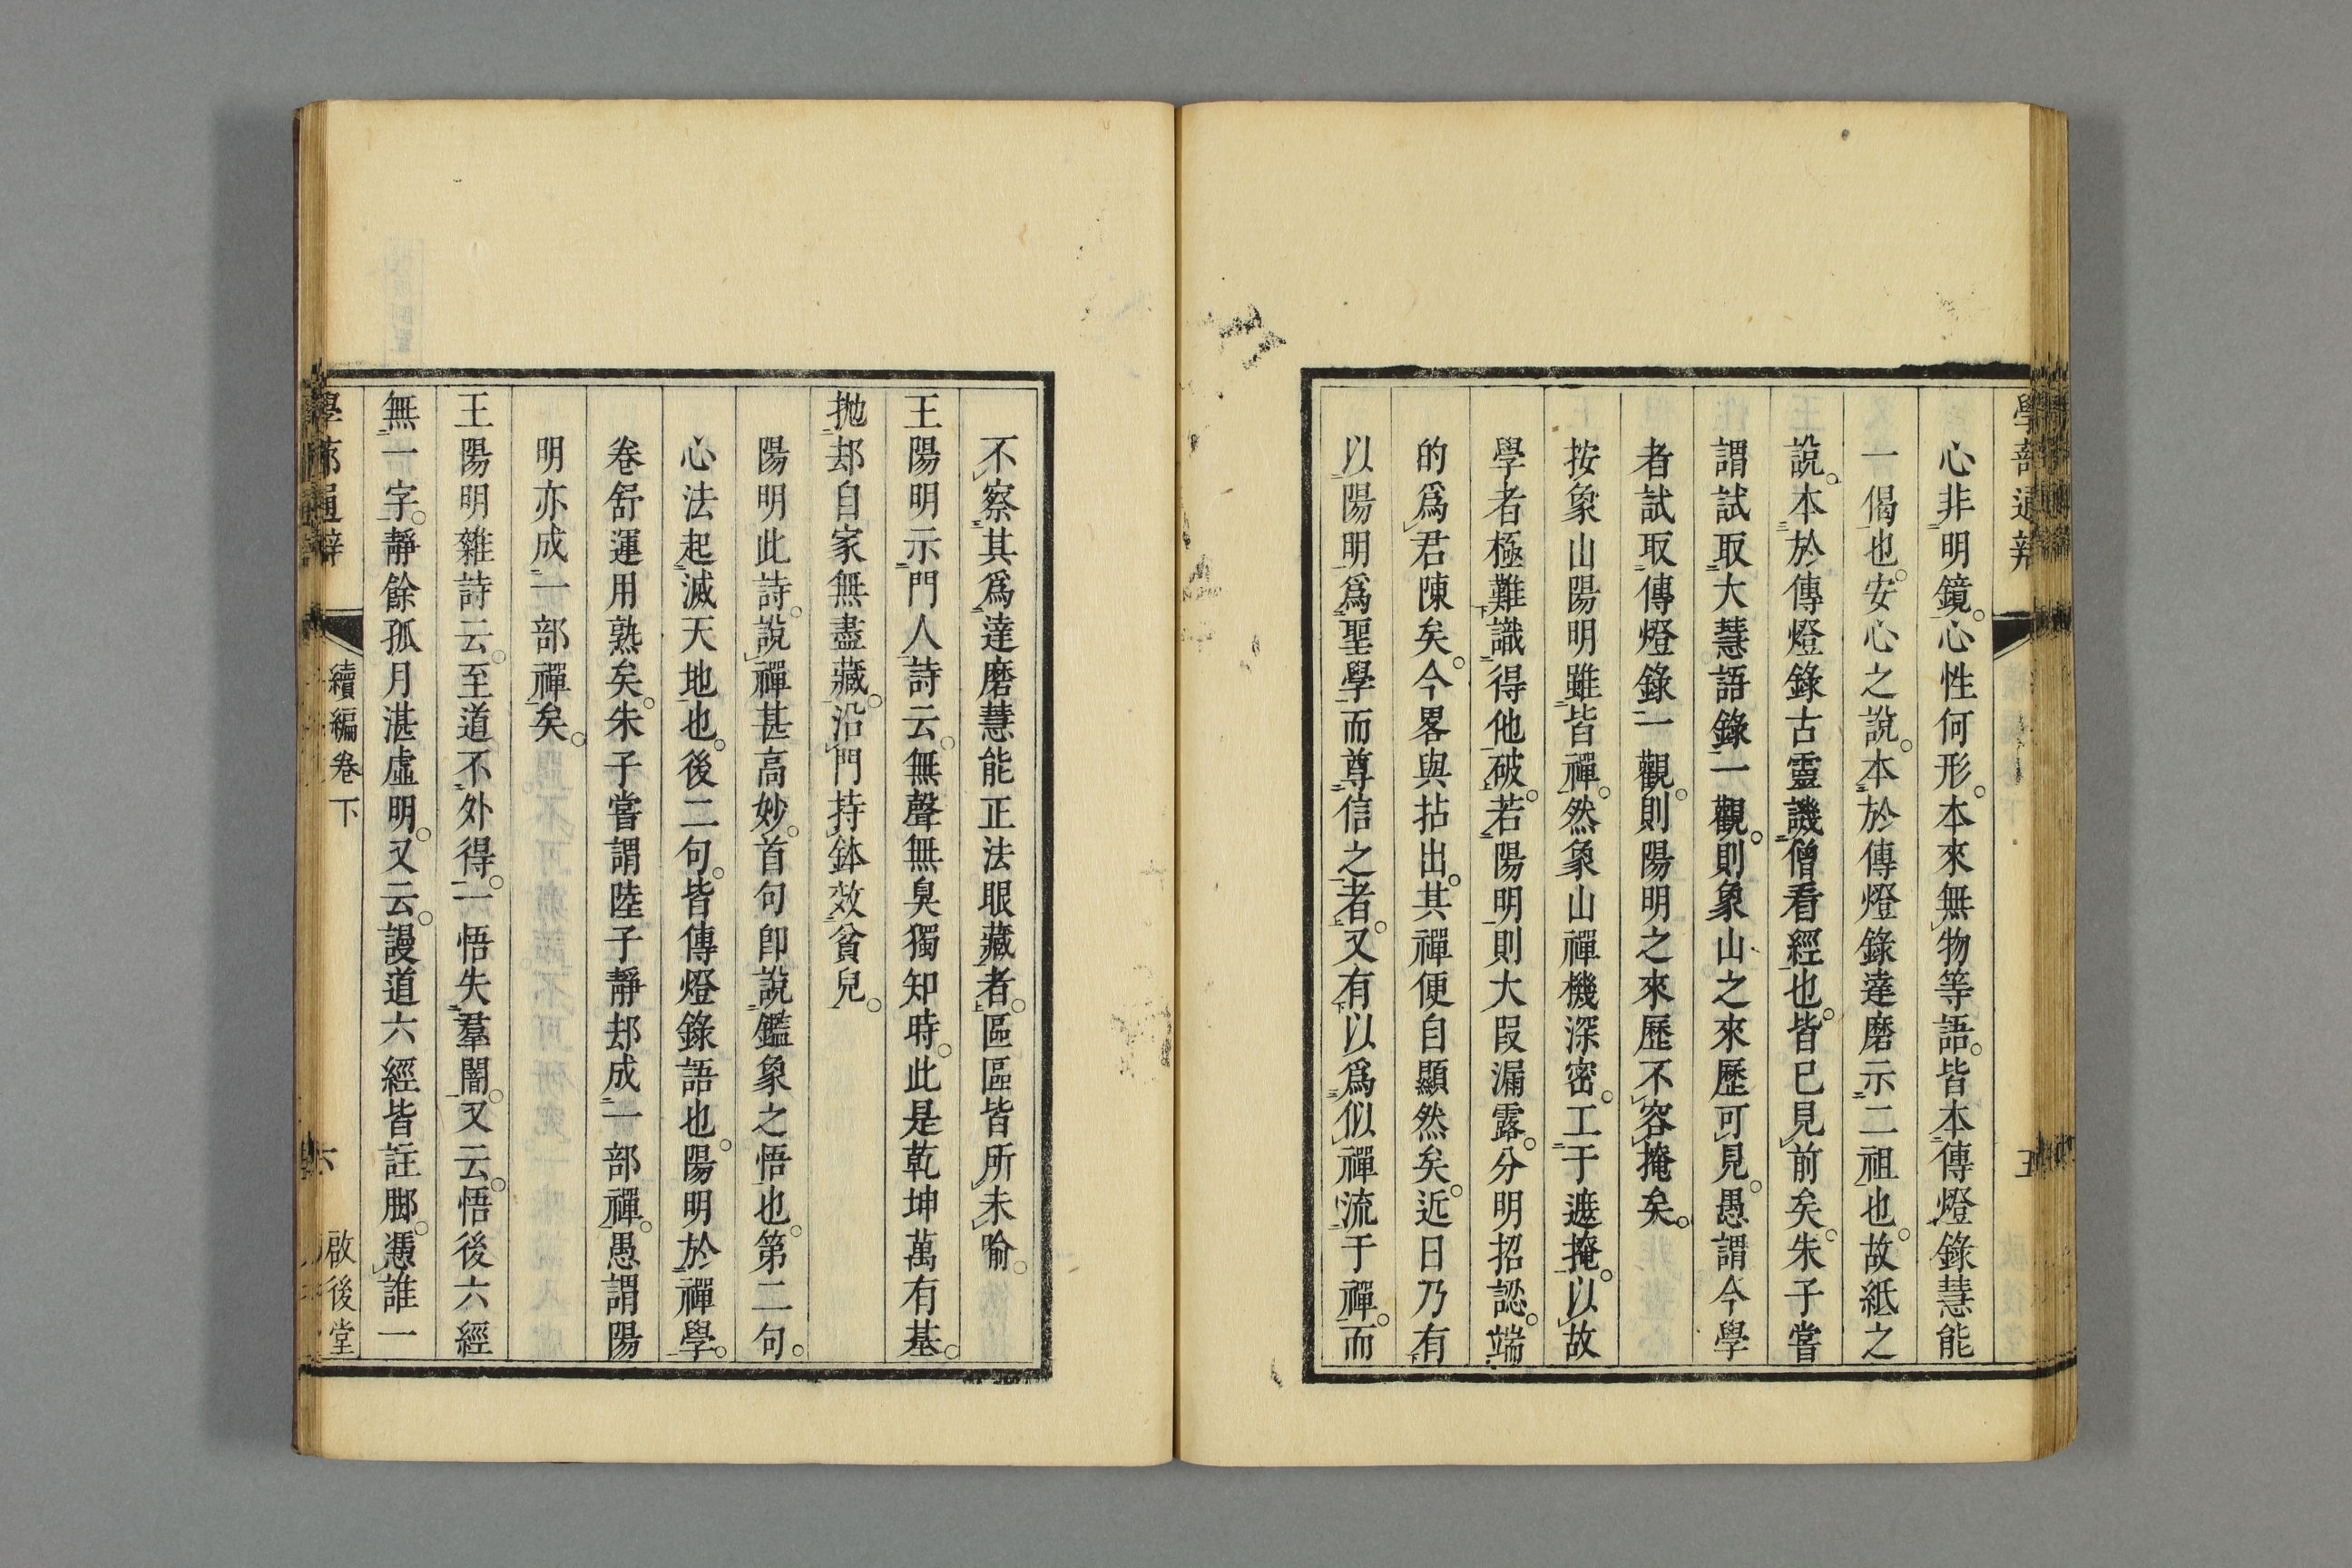 學蔀通辨
五
心非明鏡。心性何形。本來無物等語。皆本傳燈錄慧能
一偈也。安心之說。本於傳燈錄達磨示二祖也。故紙之
說。本於傳燈錄古靈譏僧看經也。皆已見前矣。朱子嘗
謂試取大慧語錄一觀。則象山之來歷可見。愚謂今學
者試取傳燈錄一觀。則陽明之來歷不容掩矣。
按象山陽明雖皆禪。然象山禪機深密。工于遮掩。以故
學者極難識得他破。若陽明則大段漏露。分明招認。端
的爲君陳矣。今畧與拈出。其禪便自顯然矣。近日乃有
以陽明爲聖學而尊信之者。又有以爲似禪流于禪。而
不察其爲達磨慧能正法眼藏者。區區皆所未喻。
王陽明示門人詩云。無聲無臭獨知時。此是乾坤萬有基。
拋却自家無盡藏。沿門持鉢效貧兒。
陽明此詩。說禪甚高妙。首句卽說鑑象之悟也。第二句。
心法起滅天地也。後二句。皆傳燈錄語也。陽明於禪學。
卷舒運用熟矣。朱子嘗謂陸子靜却成一部禪。愚謂陽
明亦成一部禪矣。
王陽明雜詩云。至道不外得。一悟失羣闇。又云。悟後六經
無一字。靜餘孤月湛虛明。又云。謾道六經皆註脚。憑誰一
學蔀通辨
續編卷下
六
啟後堂